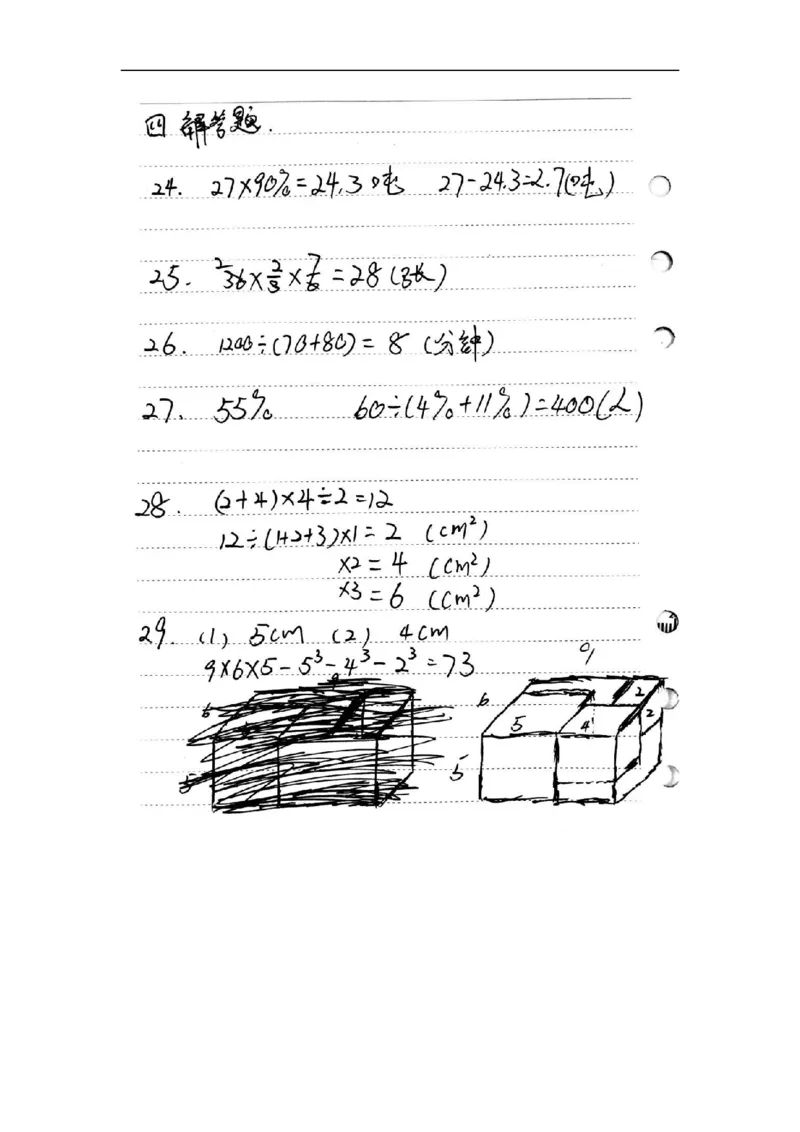 四 解答题.
24. 27×90%=24.3吨 27-24.3=2.7(吨)
25. 36×2/3×7/6=28(张)
26. 1200÷(70+80)=8(分钟)
27. 55% 60÷(4%+11%)=400(人)
28. (2+4)×4÷2=12
12÷(1+2+3)×1=2 (cm²)
×2=4 (cm²)
×3=6 (cm²)
29. (1) 5cm (2) 4cm
9×6×5-5³-4³-2³=73
9
6 2
5 4 2
5